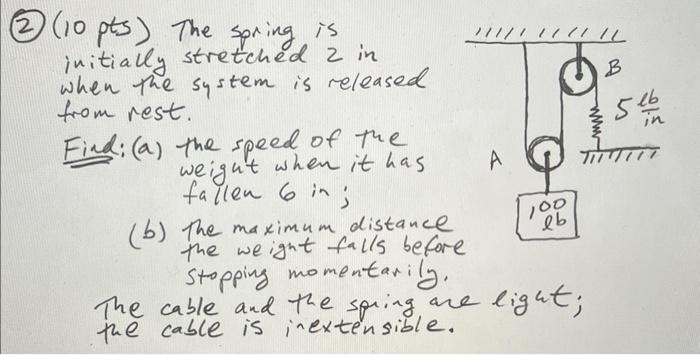 ② (10 pts) The spring is
initially stretched 2 in
when the system is released
from rest.
Find: (a) the speed of the
weight when it has
fallen 6 in;
(b) The maximum distance
the weight falls before
stopping momentarily.
The cable and the spring are light;
the cable is inextensible.
B
5 lb/in
A
100
lb